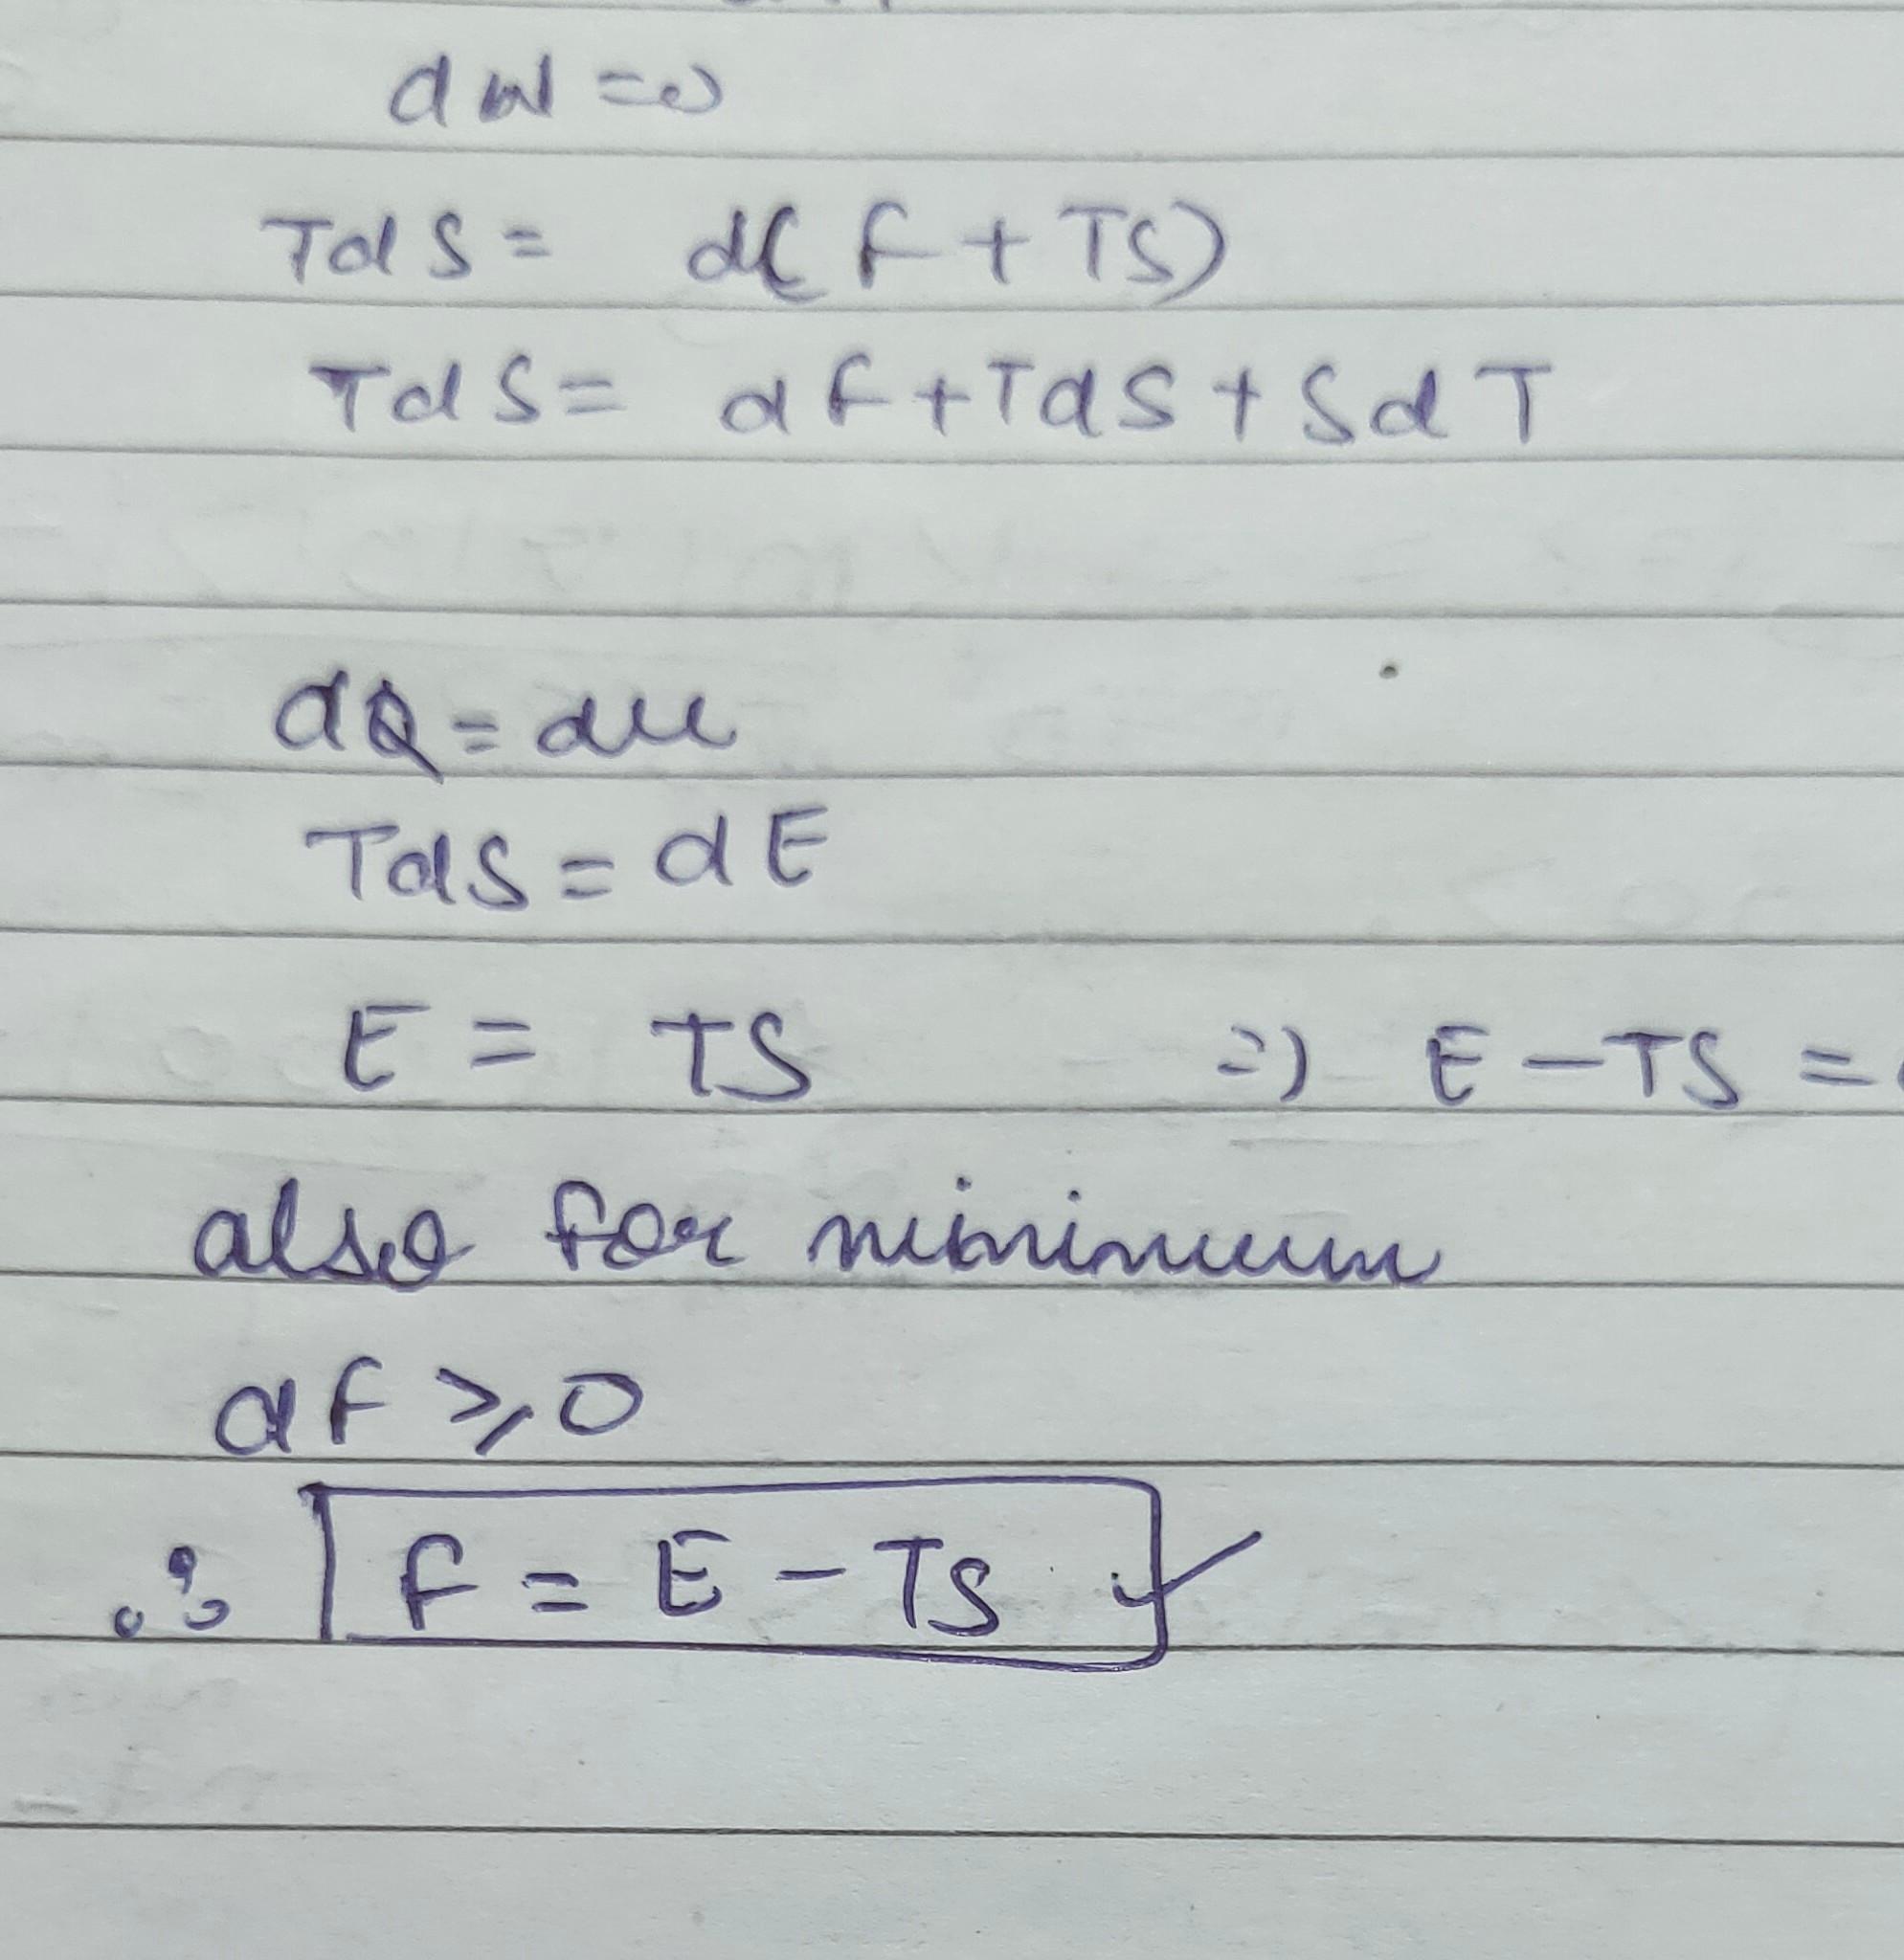 dW = 0
TdS = d(F + TS)
TdS = dF + TdS + SdT
dQ = du
TdS = dE
E = TS ⇒ E - TS =
also for minimum
dF ⩾ 0
∴ F = E - TS ✓